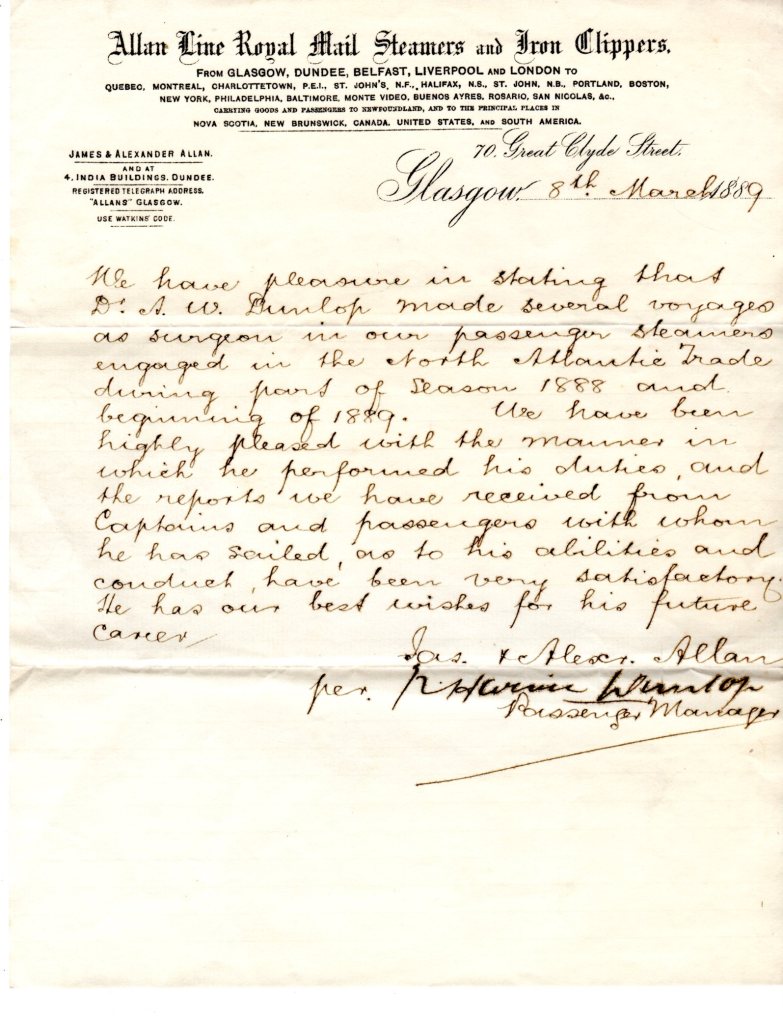 Allan Line Royal Mail Steamers and Iron Clippers.
FROM GLASGOW, DUNDEE, BELFAST, LIVERPOOL AND LONDON TO
QUEBEC, MONTREAL, CHARLOTTETOWN, P.E.I., ST. JOHN'S, N.F., HALIFAX, N.S., ST. JOHN, N.B., PORTLAND, BOSTON,
NEW YORK, PHILADELPHIA, BALTIMORE, MONTE VIDEO, BUENOS AYRES, ROSARIO, SAN NICOLAS, &C.,
CARRYING GOODS AND PASSENGERS TO NEWFOUNDLAND, AND TO THE PRINCIPAL PLACES IN
NOVA SCOTIA, NEW BRUNSWICK, CANADA, UNITED STATES, AND SOUTH AMERICA.
JAMES & ALEXANDER ALLAN.
AND AT
4, INDIA BUILDINGS, DUNDEE.
REGISTERED TELEGRAPH ADDRESS.
"ALLANS" GLASGOW.
USE WATKINS' CODE.
70, Great Clyde Street,
Glasgow, 8th March 1889
We have pleasure in stating that
Dr. A. W. Dunlop made several voyages
as surgeon in our passenger steamers
engaged in the North Atlantic Trade
during part of Season 1888 and
beginning of 1889. We have been
highly pleased with the manner in
which he performed his duties, and
the reports we have received from
Captains and passengers with whom
he has sailed, as to his abilities and
conduct, have been very satisfactory.
He has our best wishes for his future
career
Jas. & Alexr. Allan
per. Dunlop
Passenger Manager